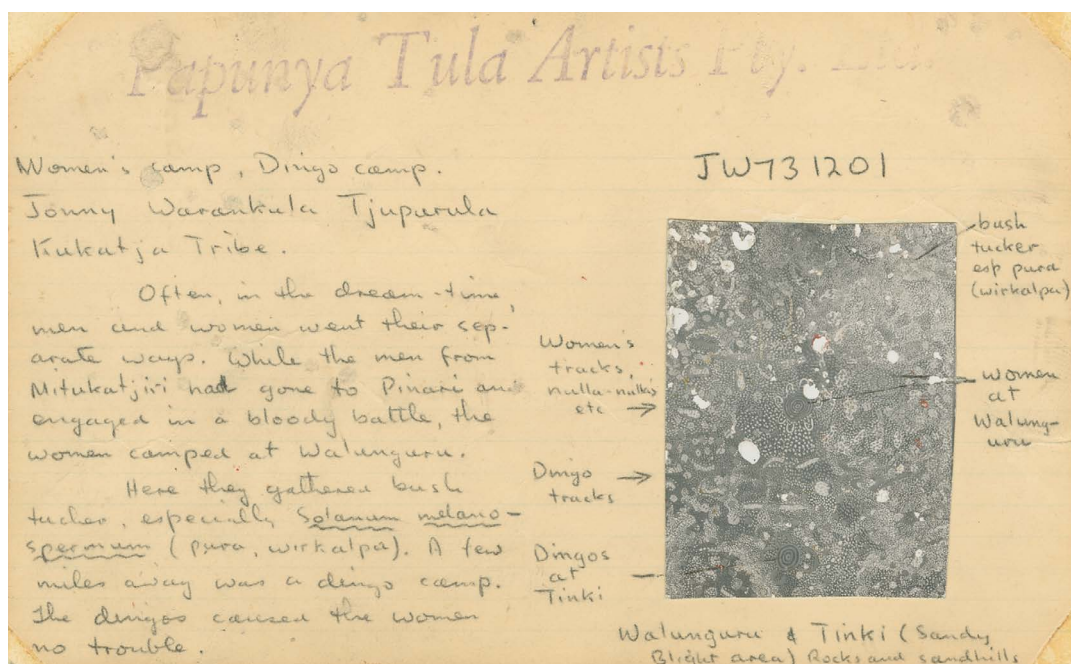 Papunya Tula Artists Pty. Ltd.
Women's camp, Dingo camp.
Jonny Warankula Tjuparula
Kukatja Tribe.
Often, in the dream-time,
men and women went their sep-
arate ways. While the men from
Mitukatjiri had gone to Pinari and
engaged in a bloody battle, the
women camped at Walunguru.
Here they gathered bush
tucker, especially Solanum melano-
spermum (pura, wirkalpa). A few
miles away was a dingo camp.
The dingos caused the women
no trouble.
JW731201
bush
tucker
esp pura
(wirkalpa)
Women's
tracks,
nulla-nullas
etc
women
at
Walung-
uru
Dingo
tracks
Dingos
at
Tinki
Walunguru & Tinki (Sandy
Blight area) Rocks and sandhills